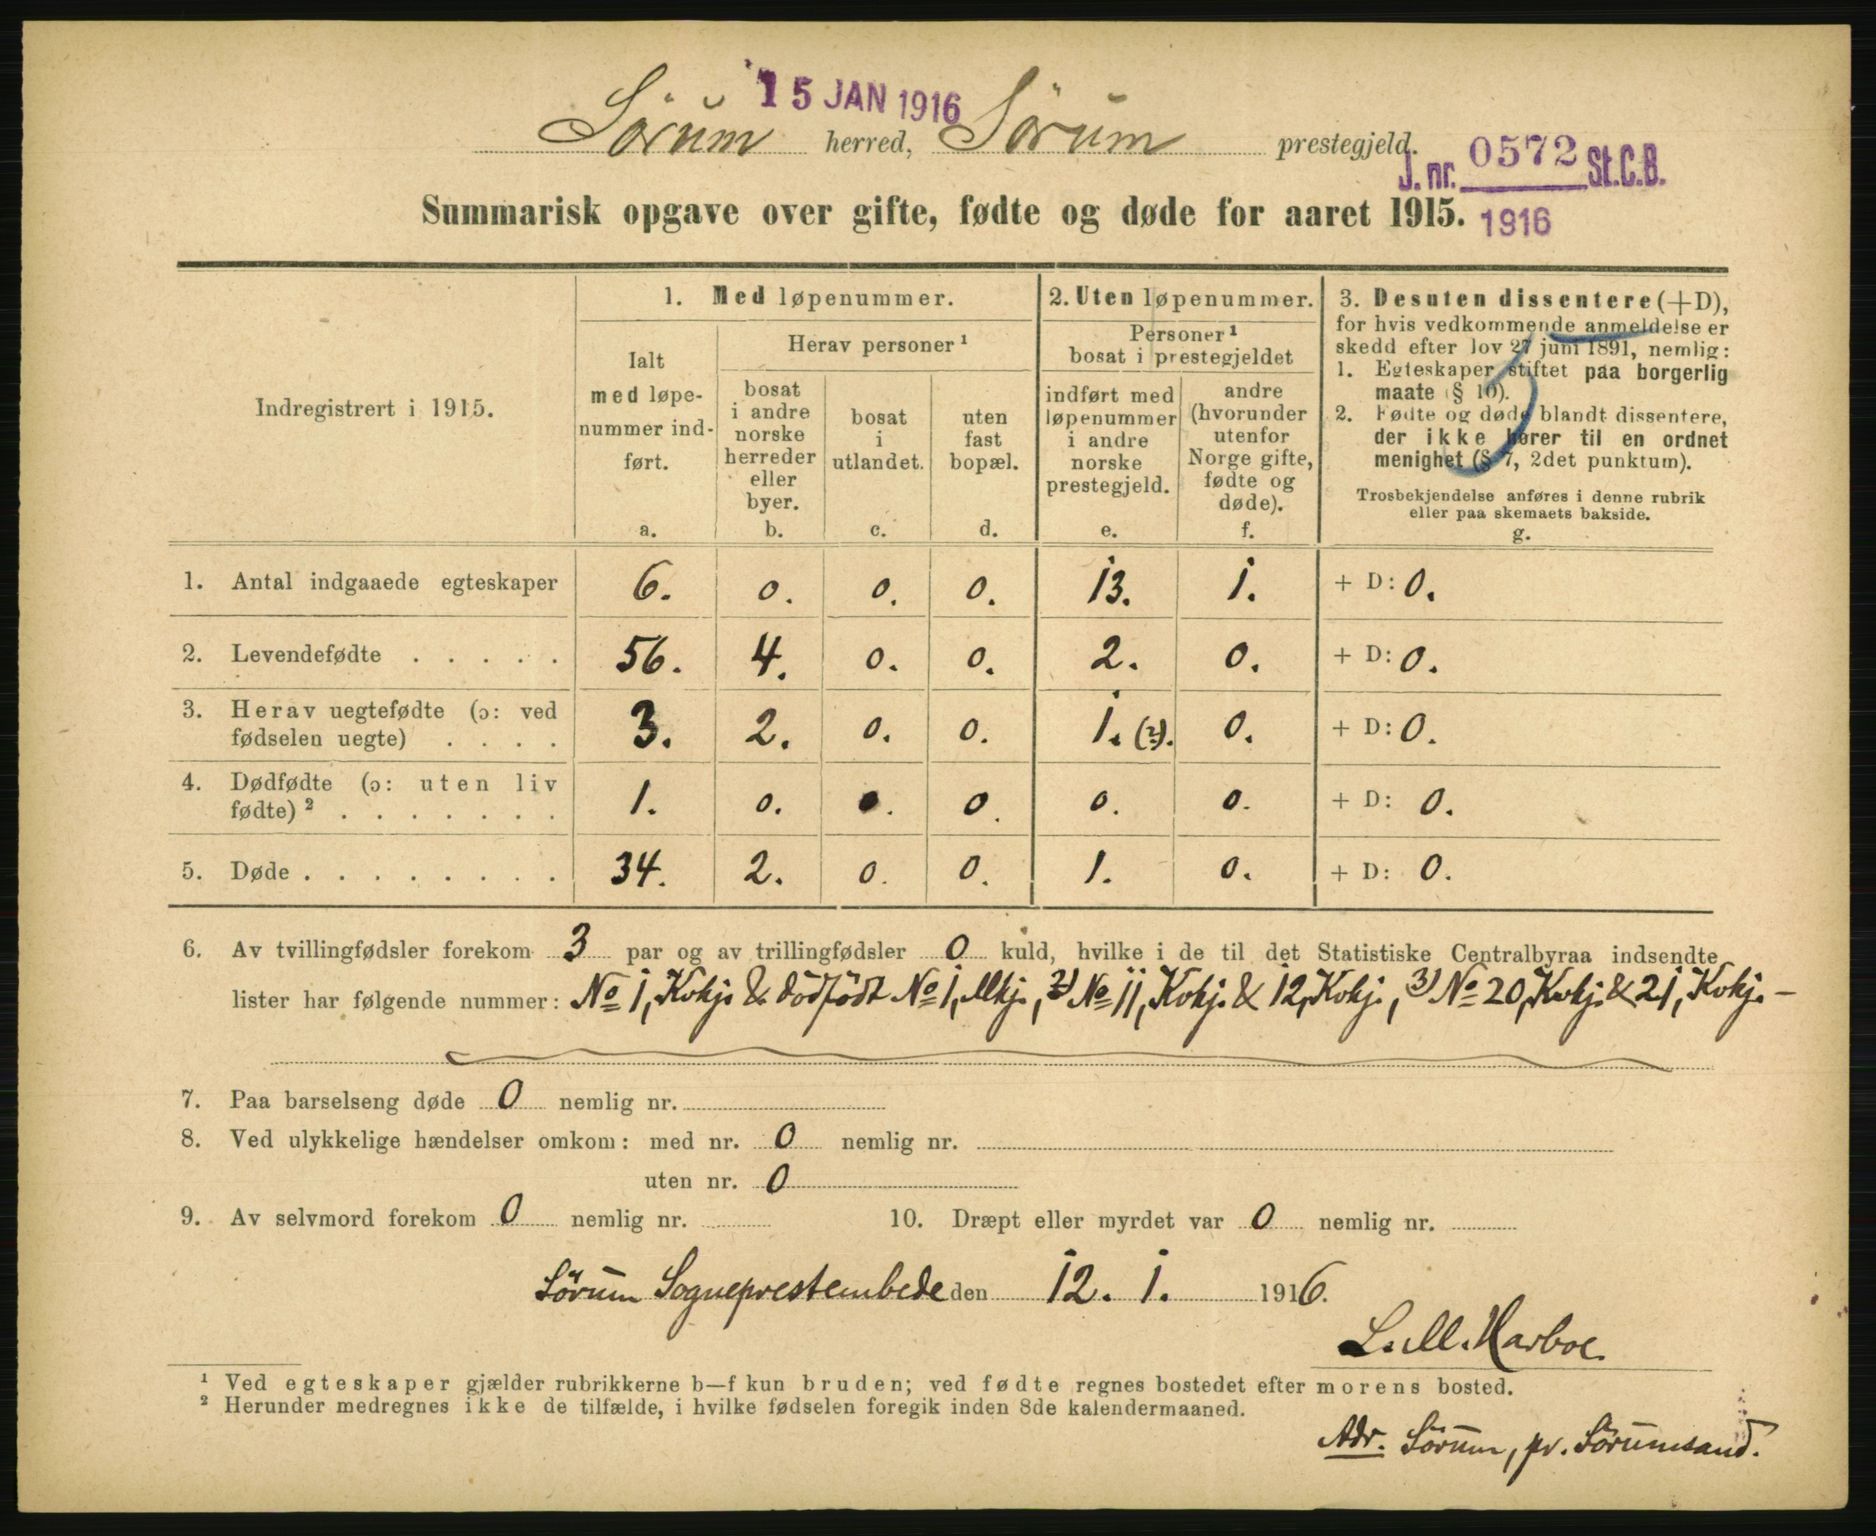 15 JAN 1916
Sørum herred, Sørum prestegjeld.
J. nr. 0572 St.C.B.
1916
Summarisk opgave over gifte, fødte og døde for aaret 1915.
Indregistrert i 1915.
1. Med løpenummer.
Ialt med løpe-nummer ind-ført.
a.
Herav personer ¹
bosat i andre norske herreder eller byer.
b.
bosat i utlandet.
c.
uten fast bopæl.
d.
2. Uten løpenummer.
Personer ¹ bosat i prestegjeldet
indført med løpenummer i andre norske prestegjeld.
e.
andre (hvorunder utenfor Norge gifte, fødte og døde).
f.
3. Desuten dissentere (+D),
for hvis vedkommende anmeldelse er
skedd efter lov 27 juni 1891, nemlig:
1. Egteskaper stiftet paa borgerlig
maate (§ 10).
2. Fødte og døde blandt dissentere,
der ikke hører til en ordnet
menighet (§ 7, 2det punktum).
Trosbekjendelse anføres i denne rubrik
eller paa skemaets bakside.
g.
1. Antal indgaaede egteskaper 6. 0. 0. 0. 13. 1. + D: 0.
2. Levendefødte . . . . . 56. 4. 0. 0. 2. 0. + D: 0.
3. Herav uegtefødte (ɔ: ved
fødselen uegte) . . . . 3. 2. 0. 0. 1. (2). 0. + D: 0.
4. Dødfødte (ɔ: uten liv
fødte) ² . . . . . . . 1. 0. 0. 0. 0. 0. + D: 0.
5. Døde . . . . . . . . 34. 2. 0. 0. 1. 0. + D: 0.
6. Av tvillingfødsler forekom 3 par og av trillingfødsler 0 kuld, hvilke i de til det Statistiske Centralbyraa indsendte
lister har følgende nummer: No 1, Kvkj. & dödfödt No 1, Mkj., 2) No 11, Kvkj. & 12, Kvkj., 3) No 20, Kvkj. & 21, Kvkj. –
7. Paa barselseng døde 0 nemlig nr.
8. Ved ulykkelige hændelser omkom: med nr. 0 nemlig nr.
uten nr. 0
9. Av selvmord forekom 0 nemlig nr. 10. Dræpt eller myrdet var 0 nemlig nr.
Sörum Sogneprestembede den 12. 1. 1916.
L. M. Harboe.
¹ Ved egteskaper gjælder rubrikkerne b—f kun bruden; ved fødte regnes bostedet efter morens bosted.
² Herunder medregnes ikke de tilfælde, i hvilke fødselen foregik inden 8de kalendermaaned.
Adr. Sörum, pr. Sörumsand.